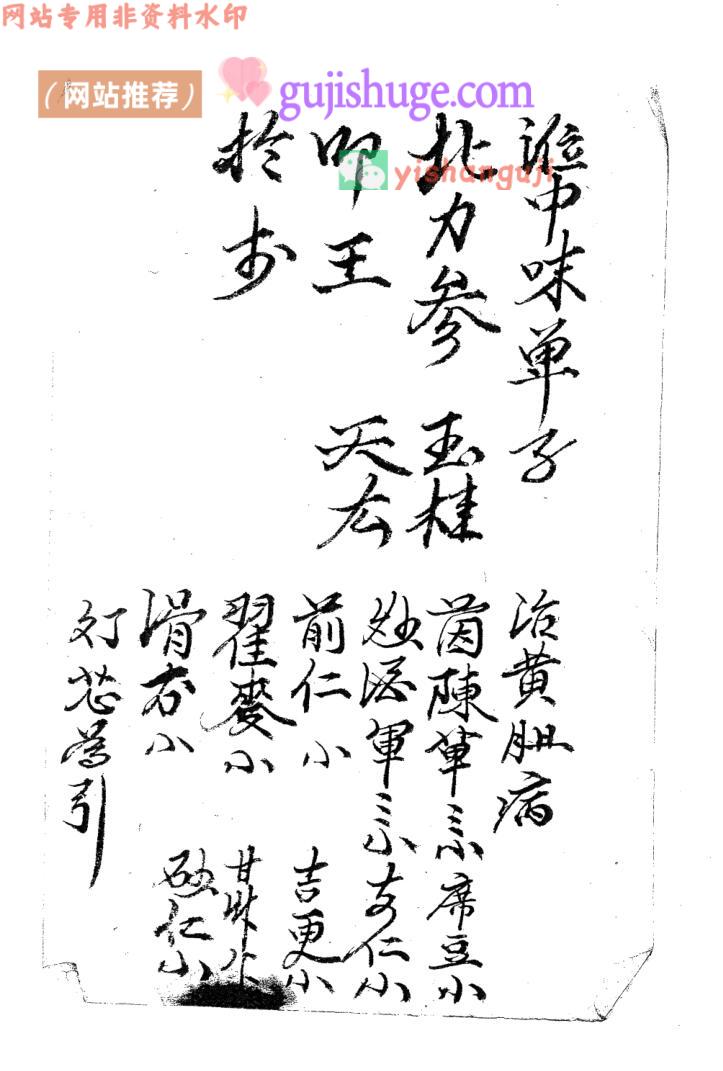 网站专用非资料水印
(网站推荐)
gujishuge.com
yishanguji
中味单子
北力参 玉桂
叩王 天厷
於
治黄胆病
茵陳草三小 席豆小
軍三小 仁小
前仁小 吉更小
翟麥小 甘
滑石小 仁小
灯芯為引